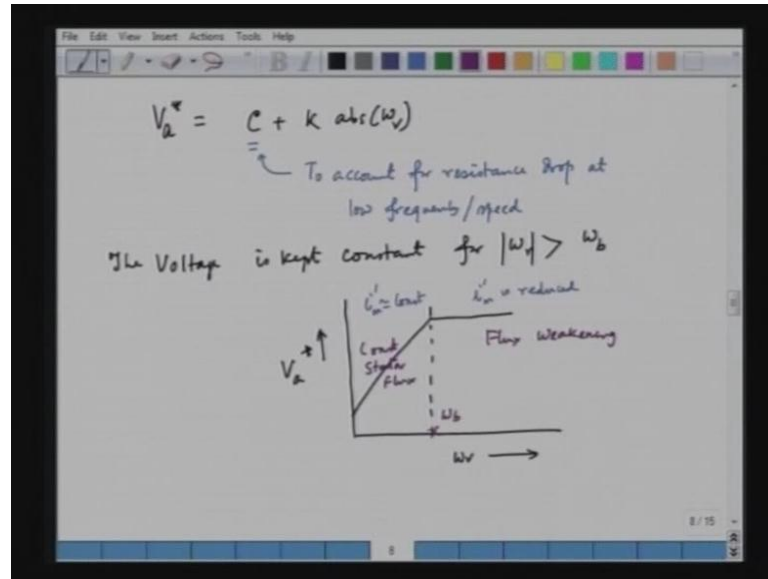 File Edit View Insert Actions Tools Help
B I
Va* = C + K abs(ωr)
To account for resistance drop at
low frequency/speed
The Voltage is kept constant for |ωr| > ωb
i'm = Const i'm is reduced
Va* Const Stator Flux Flux Weakening
ωb
ωr
8/15
8